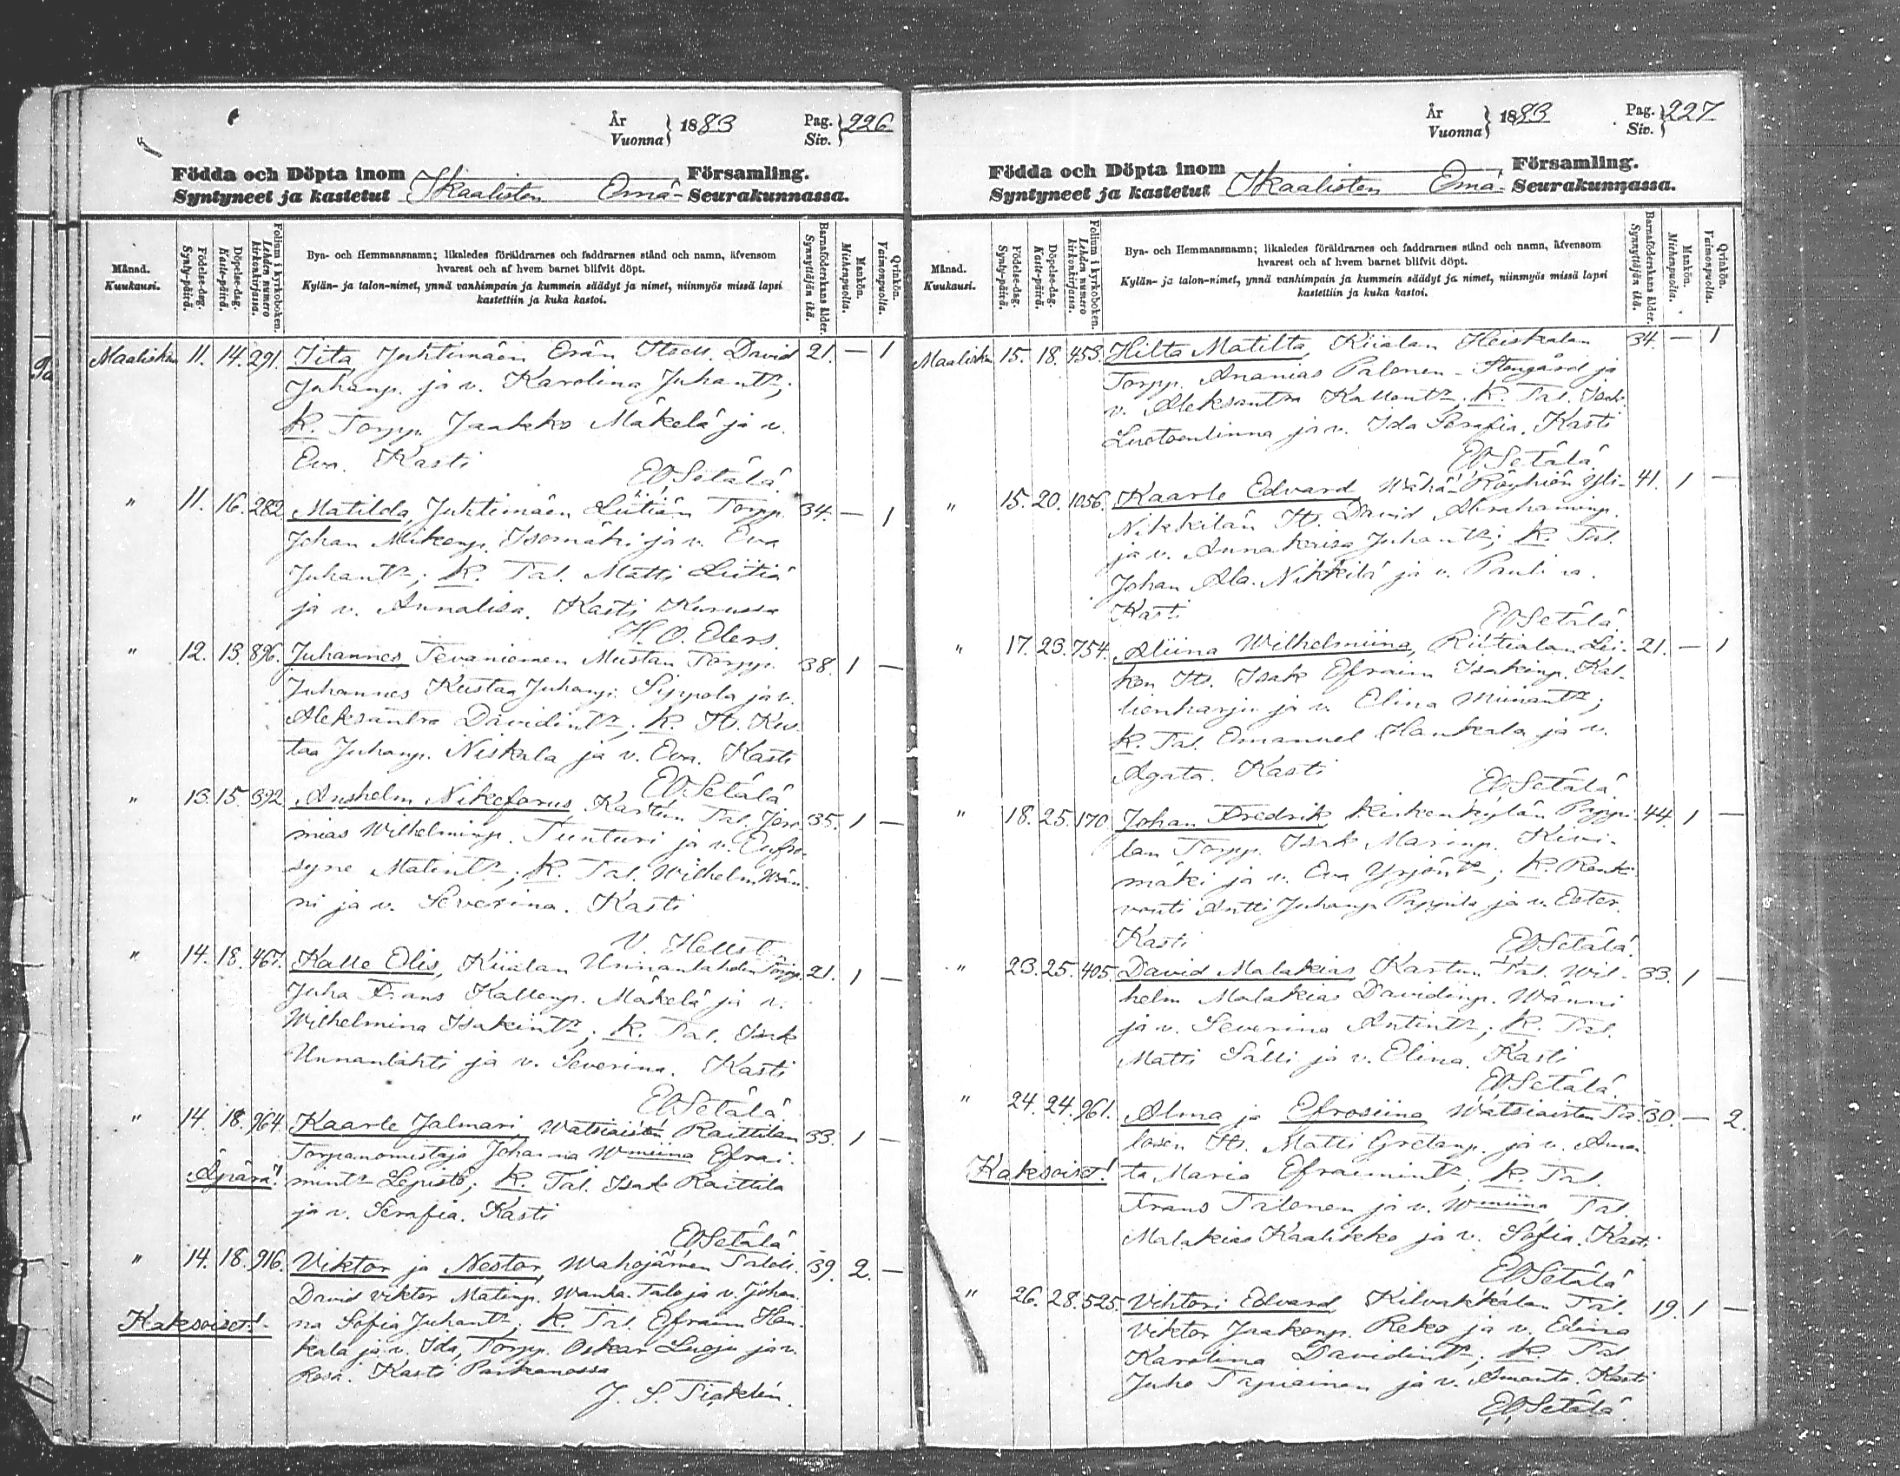 År
Vuonna } 1883
Pag.
Siv. } 226
Födda och Döpta inom
Syntyneet ja kastetut
Ikaalisten Emä-
Församling.
Seurakunnassa.
Månad.
Kuukausi.
Födelse-dag.
Synty-päivä.
Döpelse-dag.
Kaste-päivä.
Folium i kyrkoboken.
Lehden numero kirkonkirjassa.
Bya- och Hemmansnamn; likaledes föräldrarnes och faddrarnes stånd och namn, äfvensom
hvarest och af hvem barnet blifvit döpt.
Kylän- ja talon-nimet, ynnä vanhimpain ja kummein säädyt ja nimet, niinmyös missä lapsi
kastettiin ja kuka kastoi.
Barnaföderskans ålder.
Synnyttäjän ikä.
Mankön.
Miehenpuolta.
Qvinkön.
Vaimonpuolta.
Maalisku 11. 14. 291. Iita Juhtimäen Erän Itsell. David 21. — 1
Juhanp. ja v. Karolina Juhantr;
k. Torpp. Jaakko Mäkelä ja v.
Eva. Kasti
EO Setälä.
" 11. 16. 282 Matilda, Juhtimäen Liitiän Torpp. 34. — 1
Johan Mikonp. Isomäki ja v. Eva
Juhantr; k. Tal. Matti Liitiä
ja v. Annalisa. Kasti Kurussa
H. O. Elers.
" 12. 13. 896. Juhannes Tevaniemen Mustan Torpp. 38. 1 —
Juhannes Kustaa Juhanp. Sippola ja v.
Aleksantra Davidintr; k. It. Kus-
taa Juhanp. Niskala ja v. Eva. Kasti
EO Setälä.
" 13. 15. 392. Anshelm Nikeforus, Kartun Tal. Jere- 35. 1 —
mias Wilhelminp. Tunturi ja v. Eufro-
syne Matintr; k. Tal. Wilhelm Wän-
ni ja v. Severina. Kasti
V. Hellst.
" 14. 18. 467. Kalle Elis, Kiialan Unnanlahden Torpp. 21. 1 —
Juha Frans Kallenp. Mäkelä ja v.
Wilhelmina Isakintr; k. Tal. Isak
Unnanlahti ja v. Severina. Kasti
EO Setälä.
" 14. 18. 964. Kaarle Jalmari, Watsiaisten Raittilan 33. 1 —
Torpanomistaja Johanna Wmiina Efrai-
Äpärä! mintr Lepistö; k. Tal. Isak Raittila
ja v. Serafia. Kasti
EO Setälä
" 14. 18. 916. Viktor ja Nestor, Wahojärven Taloll. 39. 2. —
David Viktor Matinp. Wanha-Talo ja v. Johan-
Kaksoiset! na Sofia Juhantr; k. Tal. Efraim Han-
kala ja v. Ida, Torpp. Oskar Luoju ja v.
Rosa. Kasti Parkanossa
J. S. Tiäklén.
År
Vuonna } 1883
Pag.
Siv. } 227
Födda och Döpta inom
Syntyneet ja kastetut
Ikaalisten Emä-
Församling.
Seurakunnassa.
Månad.
Kuukausi.
Födelse-dag.
Synty-päivä.
Döpelse-dag.
Kaste-päivä.
Folium i kyrkoboken.
Lehden numero kirkonkirjassa.
Bya- och Hemmansnamn; likaledes föräldrarnes och faddrarnes stånd och namn, äfvensom
hvarest och af hvem barnet blifvit döpt.
Kylän- ja talon-nimet, ynnä vanhimpain ja kummein säädyt ja nimet, niinmyös missä lapsi
kastettiin ja kuka kastoi.
Barnaföderskans ålder.
Synnyttäjän ikä.
Mankön.
Miehenpuolta.
Qvinkön.
Vaimonpuolta.
Maalisku 15. 18. 453. Hilta Matilta, Kiialan Heiskalan 34. — 1
Torpp. Ananias Palonen-Stengård ja
v. Aleksantra Kallentr; k. Tal. Isak
Luotoenlinna ja v. Ida Serafia. Kasti
EO Setälä.
" 15. 20. 1056. Kaarle Edvard, Wähä-Röyhiön Yli- 41. 1 —
Nikkilän It. David Abrahaminp.
ja v. Annakaisa Juhantr; k. Tal.
Johan Ala-Nikkilä ja v. Pauliina.
Kasti
EO Setälä.
" 17. 23. 754. Aliina Wilhelmiina, Riitialan Lei- 21. — 1
kon It. Isak Efraim Isakinp. Kal-
lionharju ja v. Elina Miinantr;
k. Tal. Emanuel Hankala ja v.
Agata. Kasti
EO Setälä.
" 18. 25. 170 Johan Fredrik, Kirkonkylän Pappi- 44. 1 —
lan Torpp. Isak Marinp. Kivi-
mäki ja v. Eva Yrjöntr; k. Renki-
vouti Antti Juhanp. Pappila ja v. Ester.
Kasti
EO Setälä.
" 23. 25. 405. David Malakias Kartun Tal. Wil- 33. 1 —
helm Malakias Davidinp. Wänni
ja v. Severina Antintr; k. Tal.
Matti Sälli ja v. Elina. Kasti
EO Setälä.
" 24. 24. 961. Alma ja Efrosiina, Watsiaisten Ta- 30. — 2.
losen It. Matti Gretanp. ja v. Aman-
Kaksoiset! ta Maria Efraimintr; k. Tal.
Frans Talonen ja v. Wmiina Tal.
Malakias Kaalikko ja v. Sofia. Kasti
EO Setälä
" 26. 28. 525. Vihtori Edvard Kilvakkalan Tal. 19. 1 —
Viktor Jaakonp. Reko ja v. Elina
Karolina Davidintr; k. Tal.
Juho Tapiainen ja v. Amanta. Kasti
EO Setälä.